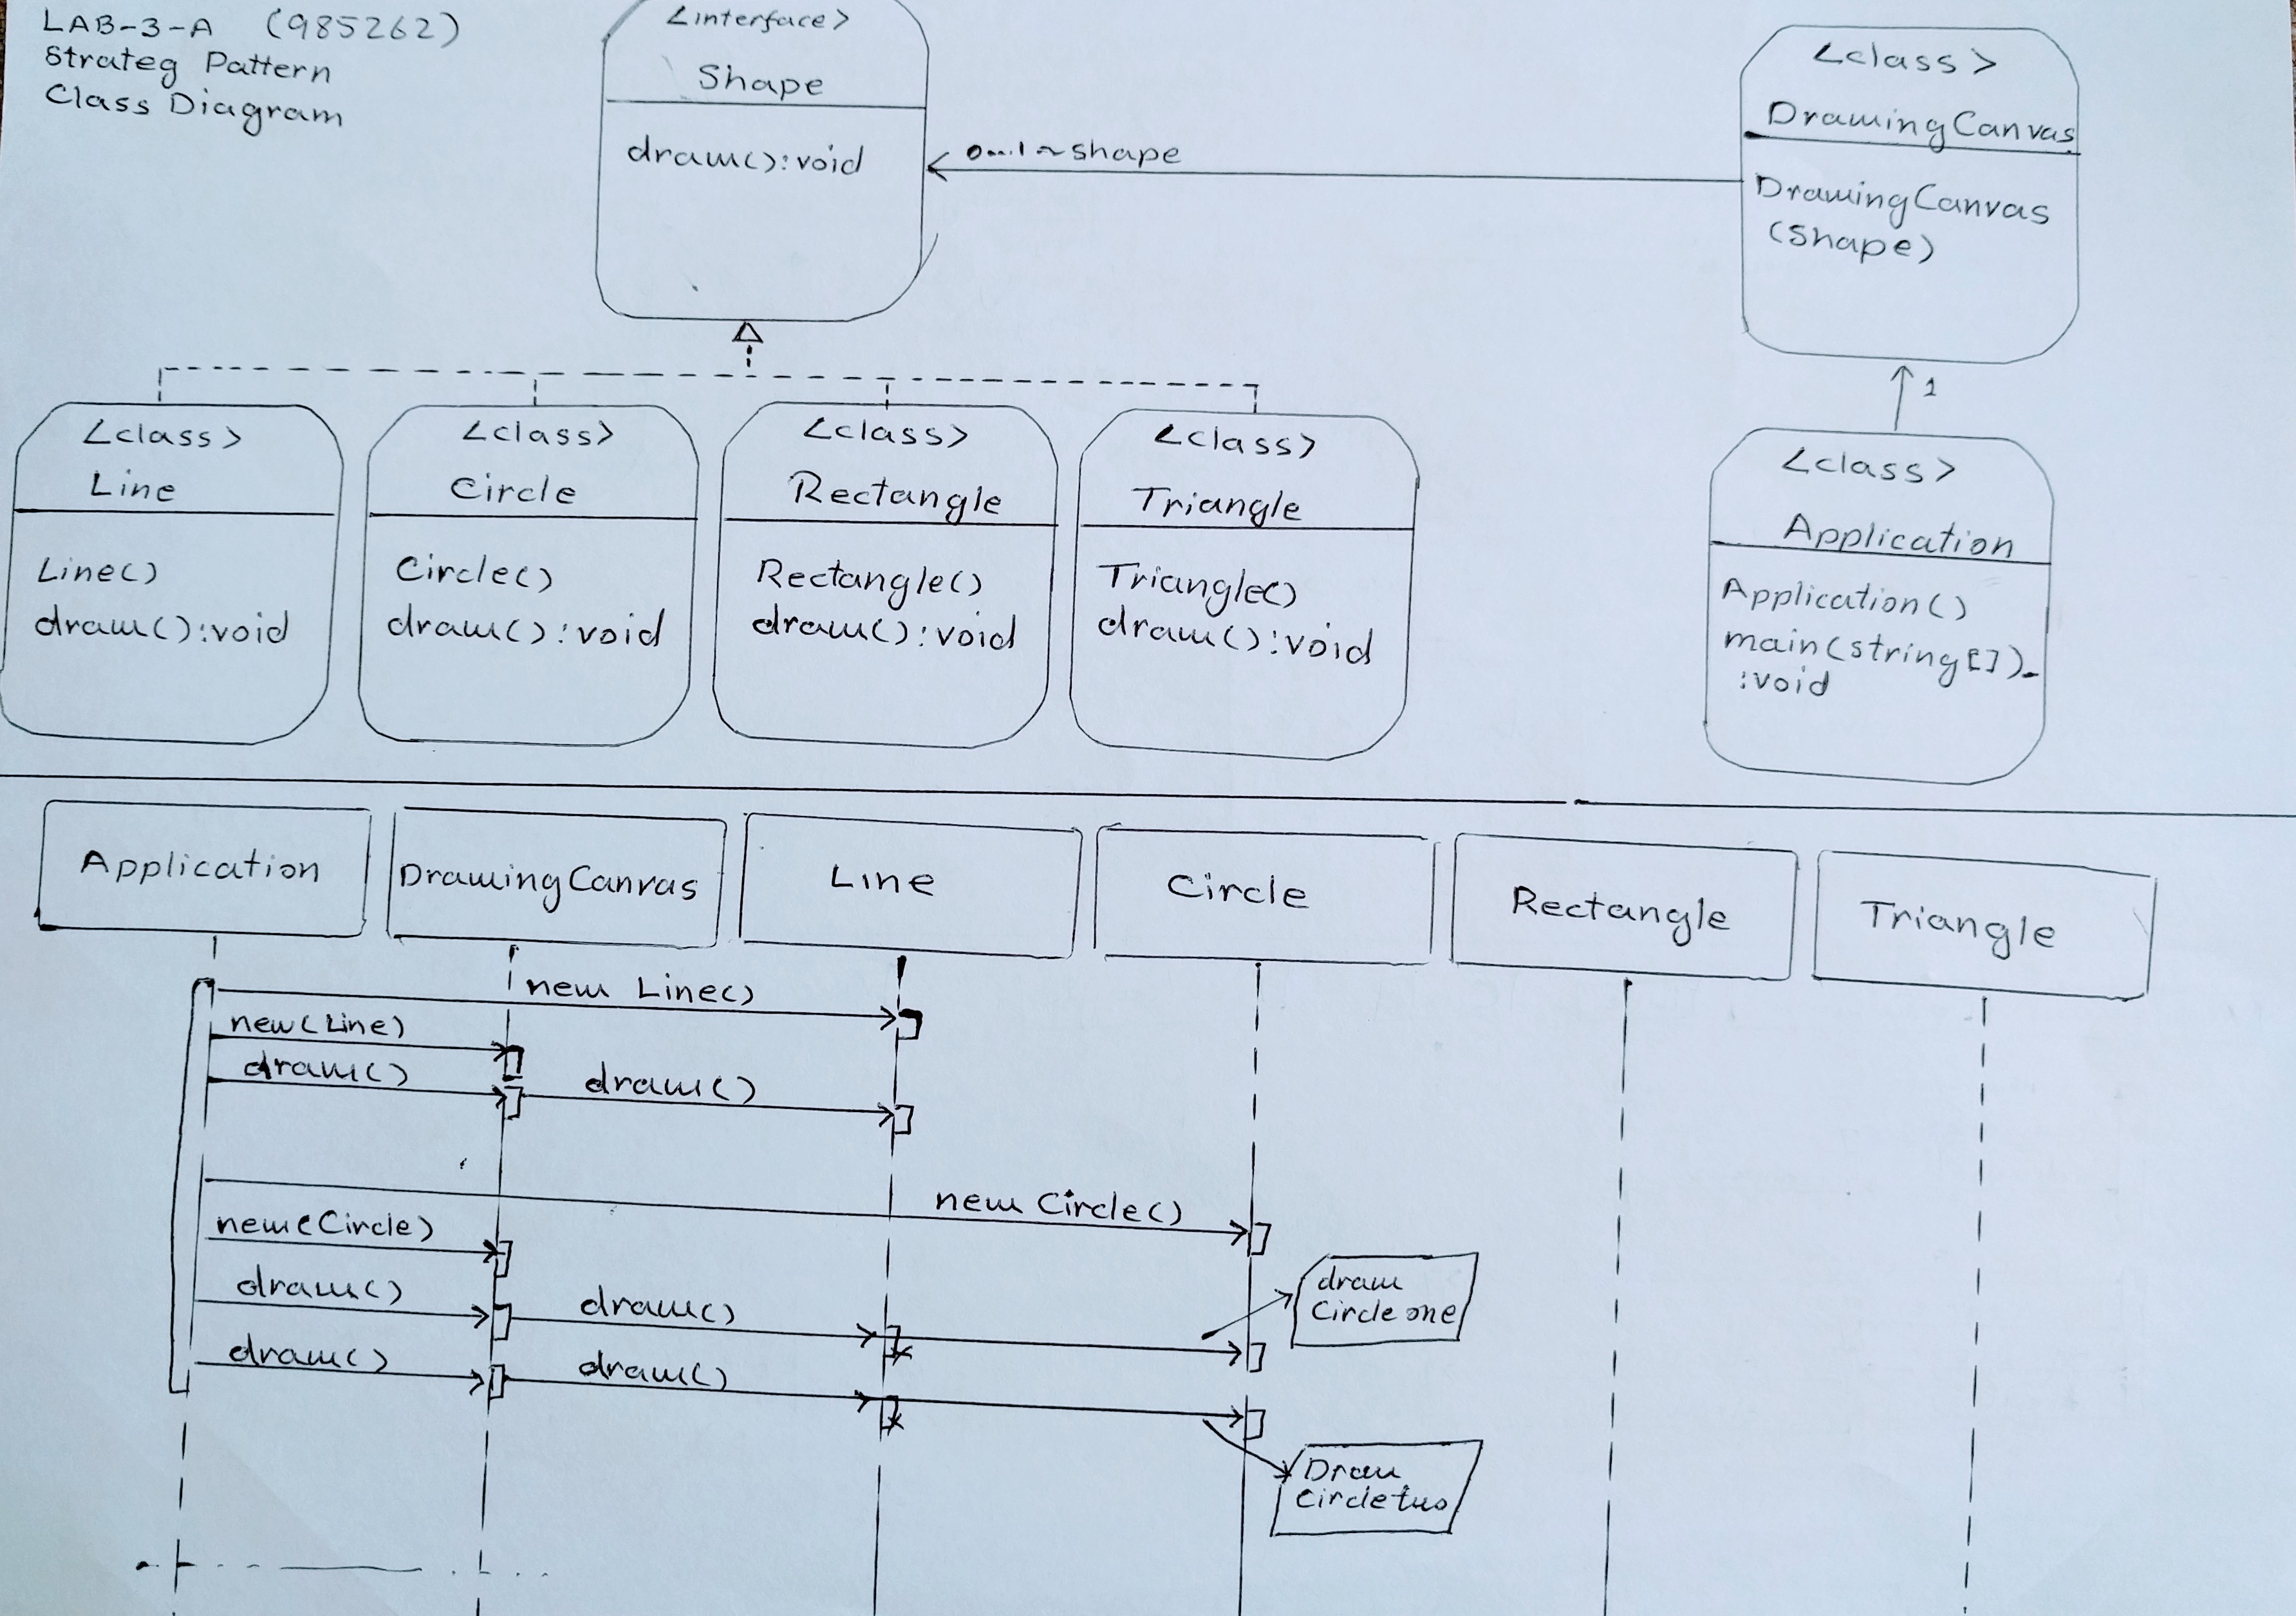 LAB-3-A (985262)
Strateg Pattern
Class Diagram
<interface>
Shape
draw():void
0..1 ~ shape
<class>
DrawingCanvas
DrawingCanvas
(Shape)
1
<class>
Line
Line()
draw():void
<class>
Circle
Circle()
draw():void
<class>
Rectangle
Rectangle()
draw():void
<class>
Triangle
Triangle()
draw():void
<class>
Application
Application()
main(string[])
:void
Application
DrawingCanvas
Line
Circle
Rectangle
Triangle
new Line()
new(Line)
draw()
draw()
new Circle()
new(Circle)
draw()
draw()
draw
Circle one
draw()
draw()
Draw
Circle two